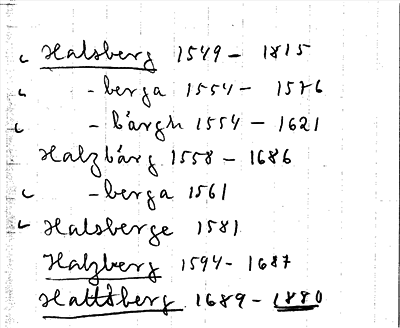 Halsberg 1549 - 1815
-berga 1554 - 1576
-bårgh 1554 - 1621
Halzbårg 1558 - 1686
-berga 1561
Halsberge 1581
Halzberg 1594 - 1687
Hattsberg 1689 - 1880